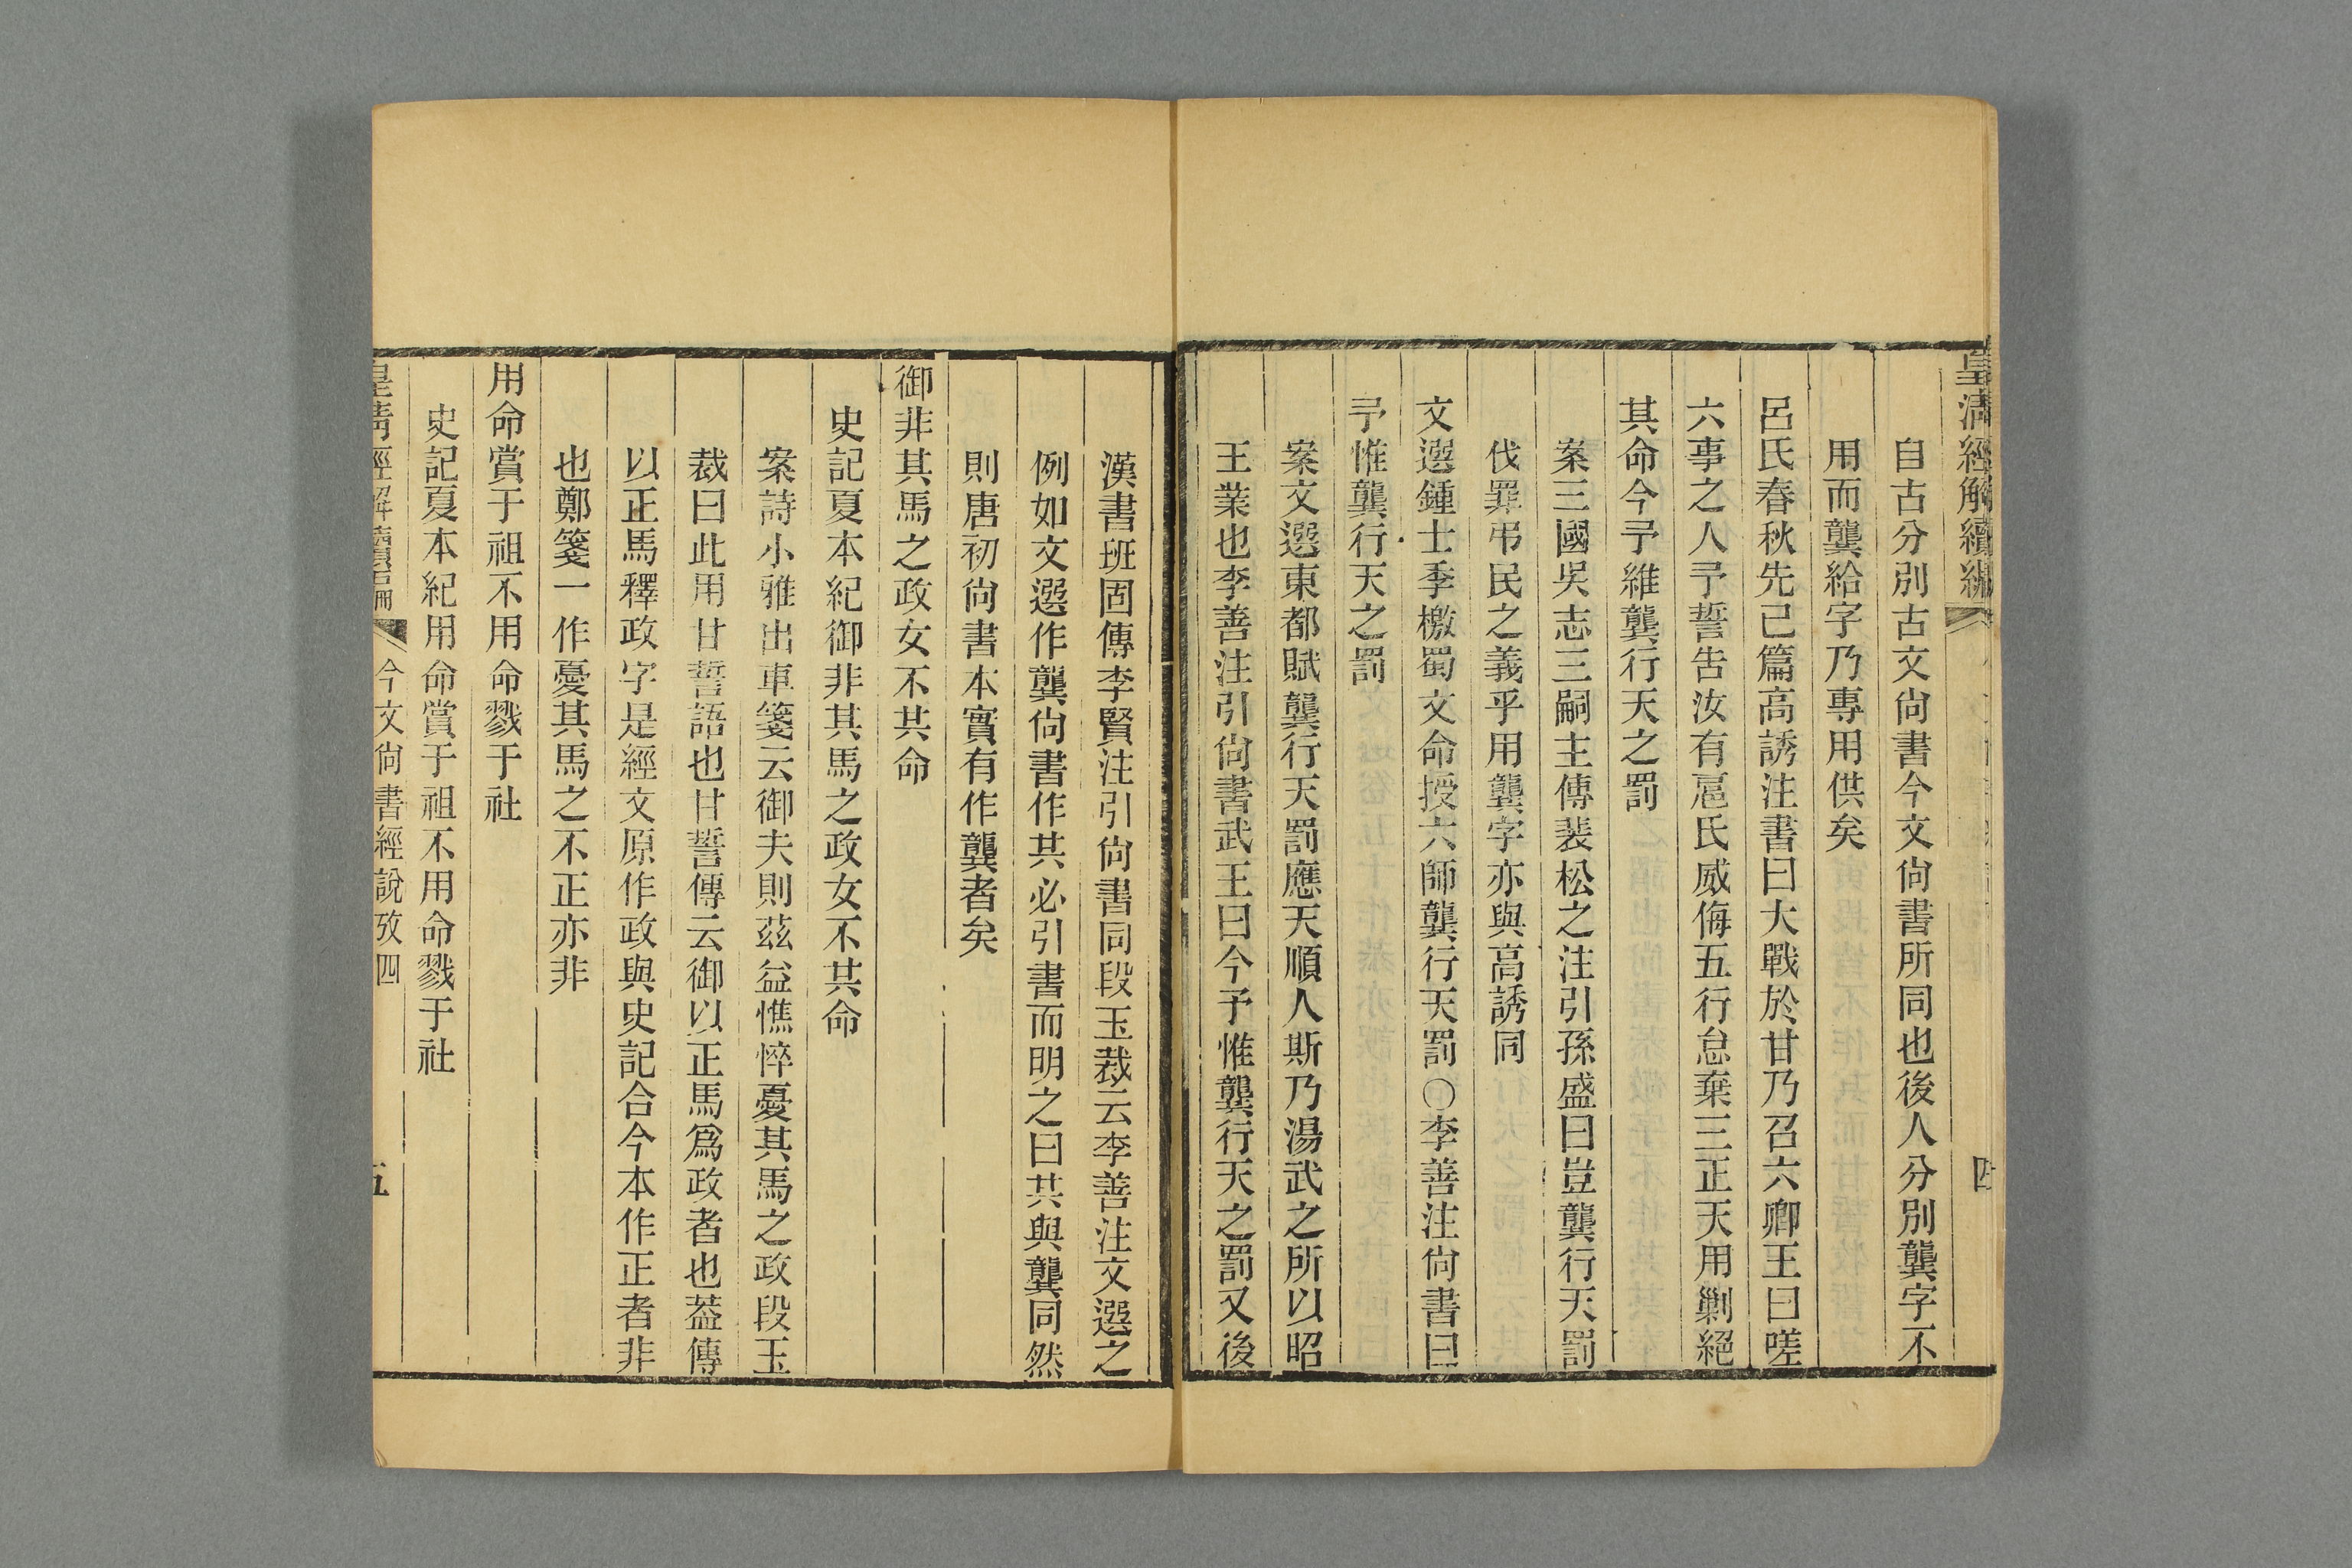 皇清經解續編
四
自古分別古文尙書今文尙書所同也後人分別龔字不
用而龔給字乃專用供矣
呂氏春秋先己篇高誘注書曰大戰於甘乃召六卿王曰嗟
六事之人予誓告汝有扈氏威侮五行怠棄三正天用剿絕
其命今予維龔行天之罰
案三國吳志三嗣主傳裴松之注引孫盛曰豈龔行天罰
伐罪弔民之義乎用龔字亦與高誘同
文選鍾士季檄蜀文命授六師龔行天罰○李善注尙書曰
予惟龔行天之罰
案文選東都賦龔行天罰應天順人斯乃湯武之所以昭
王業也李善注引尙書武王曰今予惟龔行天之罰又後
漢書班固傳李賢注引尙書同段玉裁云李善注文選之
例如文選作龔尙書作其必引書而明之曰共與龔同然
則唐初尙書本實有作龔者矣
御非其馬之政女不共命
史記夏本紀御非其馬之政女不共命
案詩小雅出車箋云御夫則茲益憔悴憂其馬之政段玉
裁曰此用甘誓語也甘誓傳云御以正馬爲政者也葢傳
以正馬釋政字是經文原作政與史記合今本作正者非
也鄭箋一作憂其馬之不正亦非
用命賞于祖不用命戮于社
史記夏本紀用命賞于祖不用命戮于社
皇清經解續編
今文尙書經說攷四
五